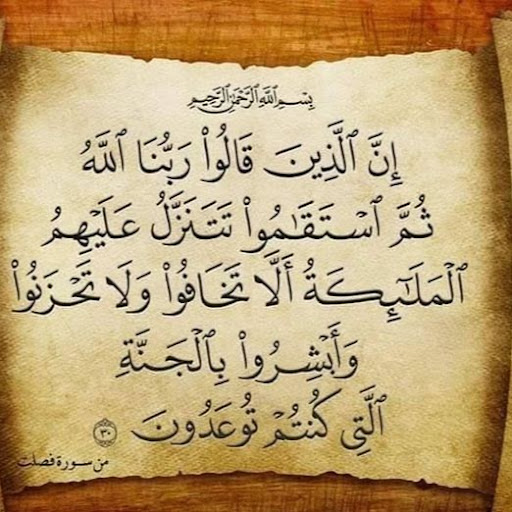 بِسْمِ ٱللَّهِ ٱلرَّحْمَٰنِ ٱلرَّحِيمِ
إِنَّ ٱلَّذِينَ قَالُوا۟ رَبُّنَا ٱللَّهُ
ثُمَّ ٱسْتَقَٰمُوا۟ تَتَنَزَّلُ عَلَيْهِمُ
ٱلْمَلَٰٓئِكَةُ أَلَّا تَخَافُوا۟ وَلَا تَحْزَنُوا۟
وَأَبْشِرُوا۟ بِٱلْجَنَّةِ
ٱلَّتِى كُنتُمْ تُوعَدُونَ ٣٠
من سورة فصلت